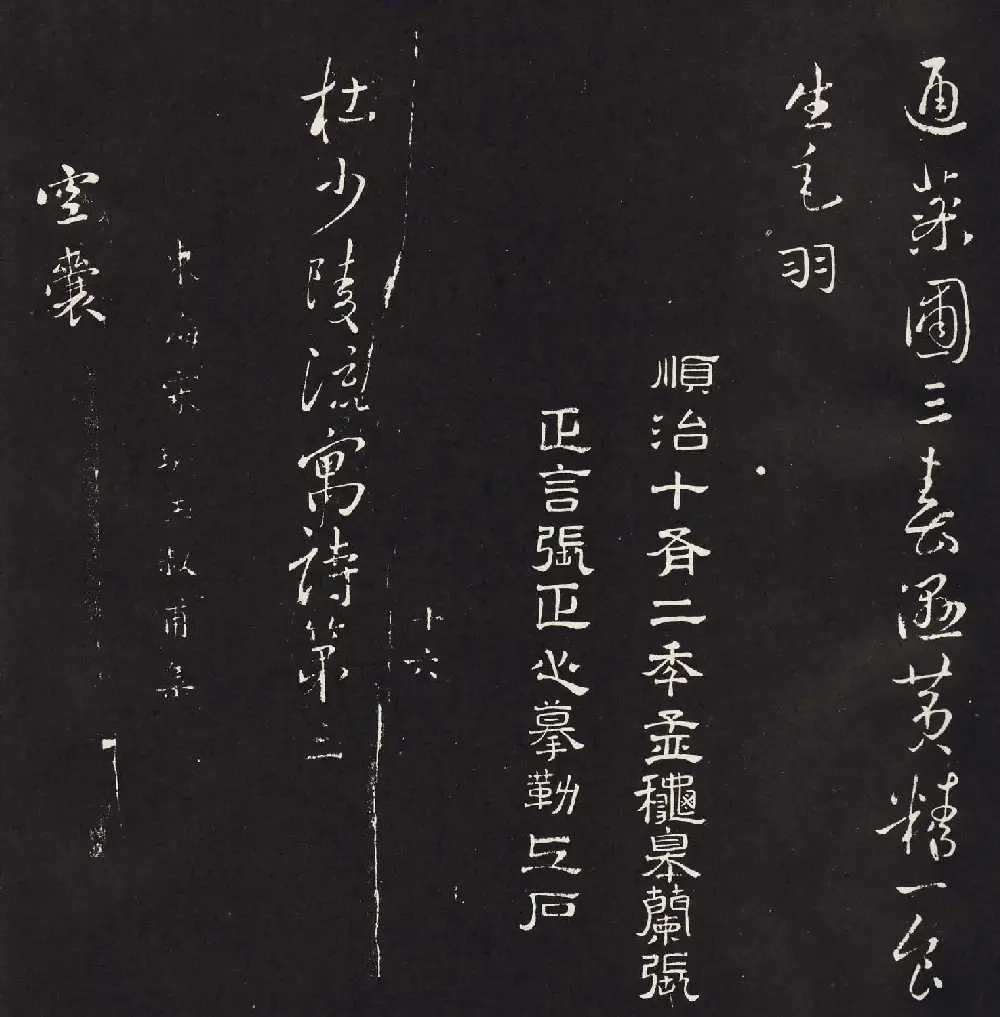 通藥圃三春濕黃精一食
生毛羽
順治十有二秊孟龝皋蘭張
正言張正心摹勒上石
十六
杜少陵流寓詩第三
東海宋琬玉叔甫集
空囊